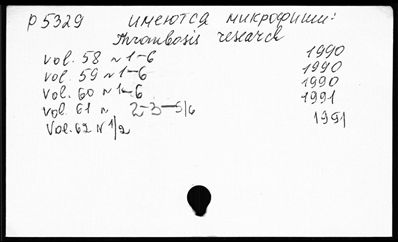 р 5329 имеются микрофиши:
Thrombosis research
vol. 58 N 1-6 1990
vol. 59 N 1-6 1990
vol. 60 N 1-6 1990
vol. 61 N 2-3-5/6 1991
Vol. 62 N 1/2 1991